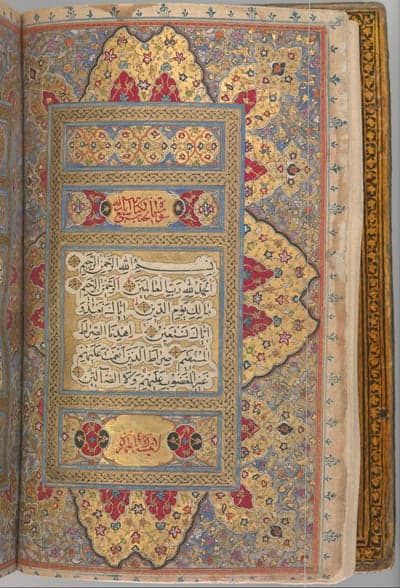 بسم الله الرحمن الرحيم
الحمد لله رب العالمين الرحمن الرحيم
مالك يوم الدين اياك نعبد و
اياك نستعين اهدنا الصراط
المستقيم صراط الذين انعمت عليهم
غير المغضوب عليهم ولا الضالين